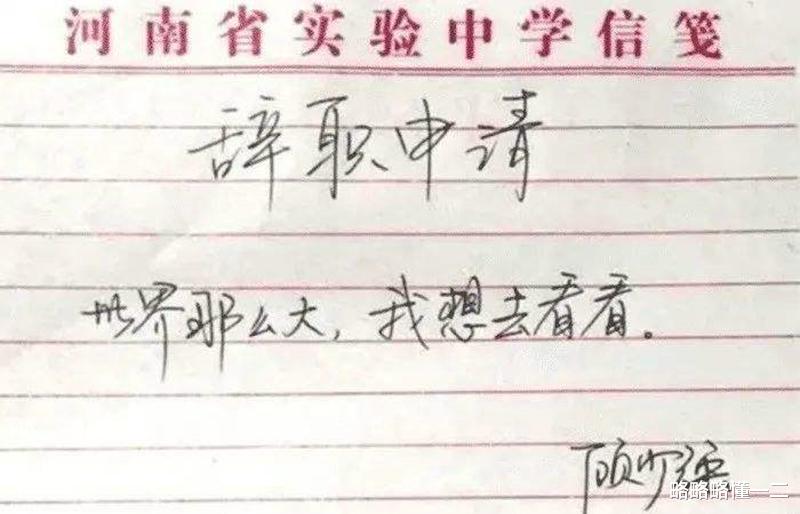 河南省实验中学信笺
辞职申请
世界那么大，我想去看看。
顾少强
略略略懂一二